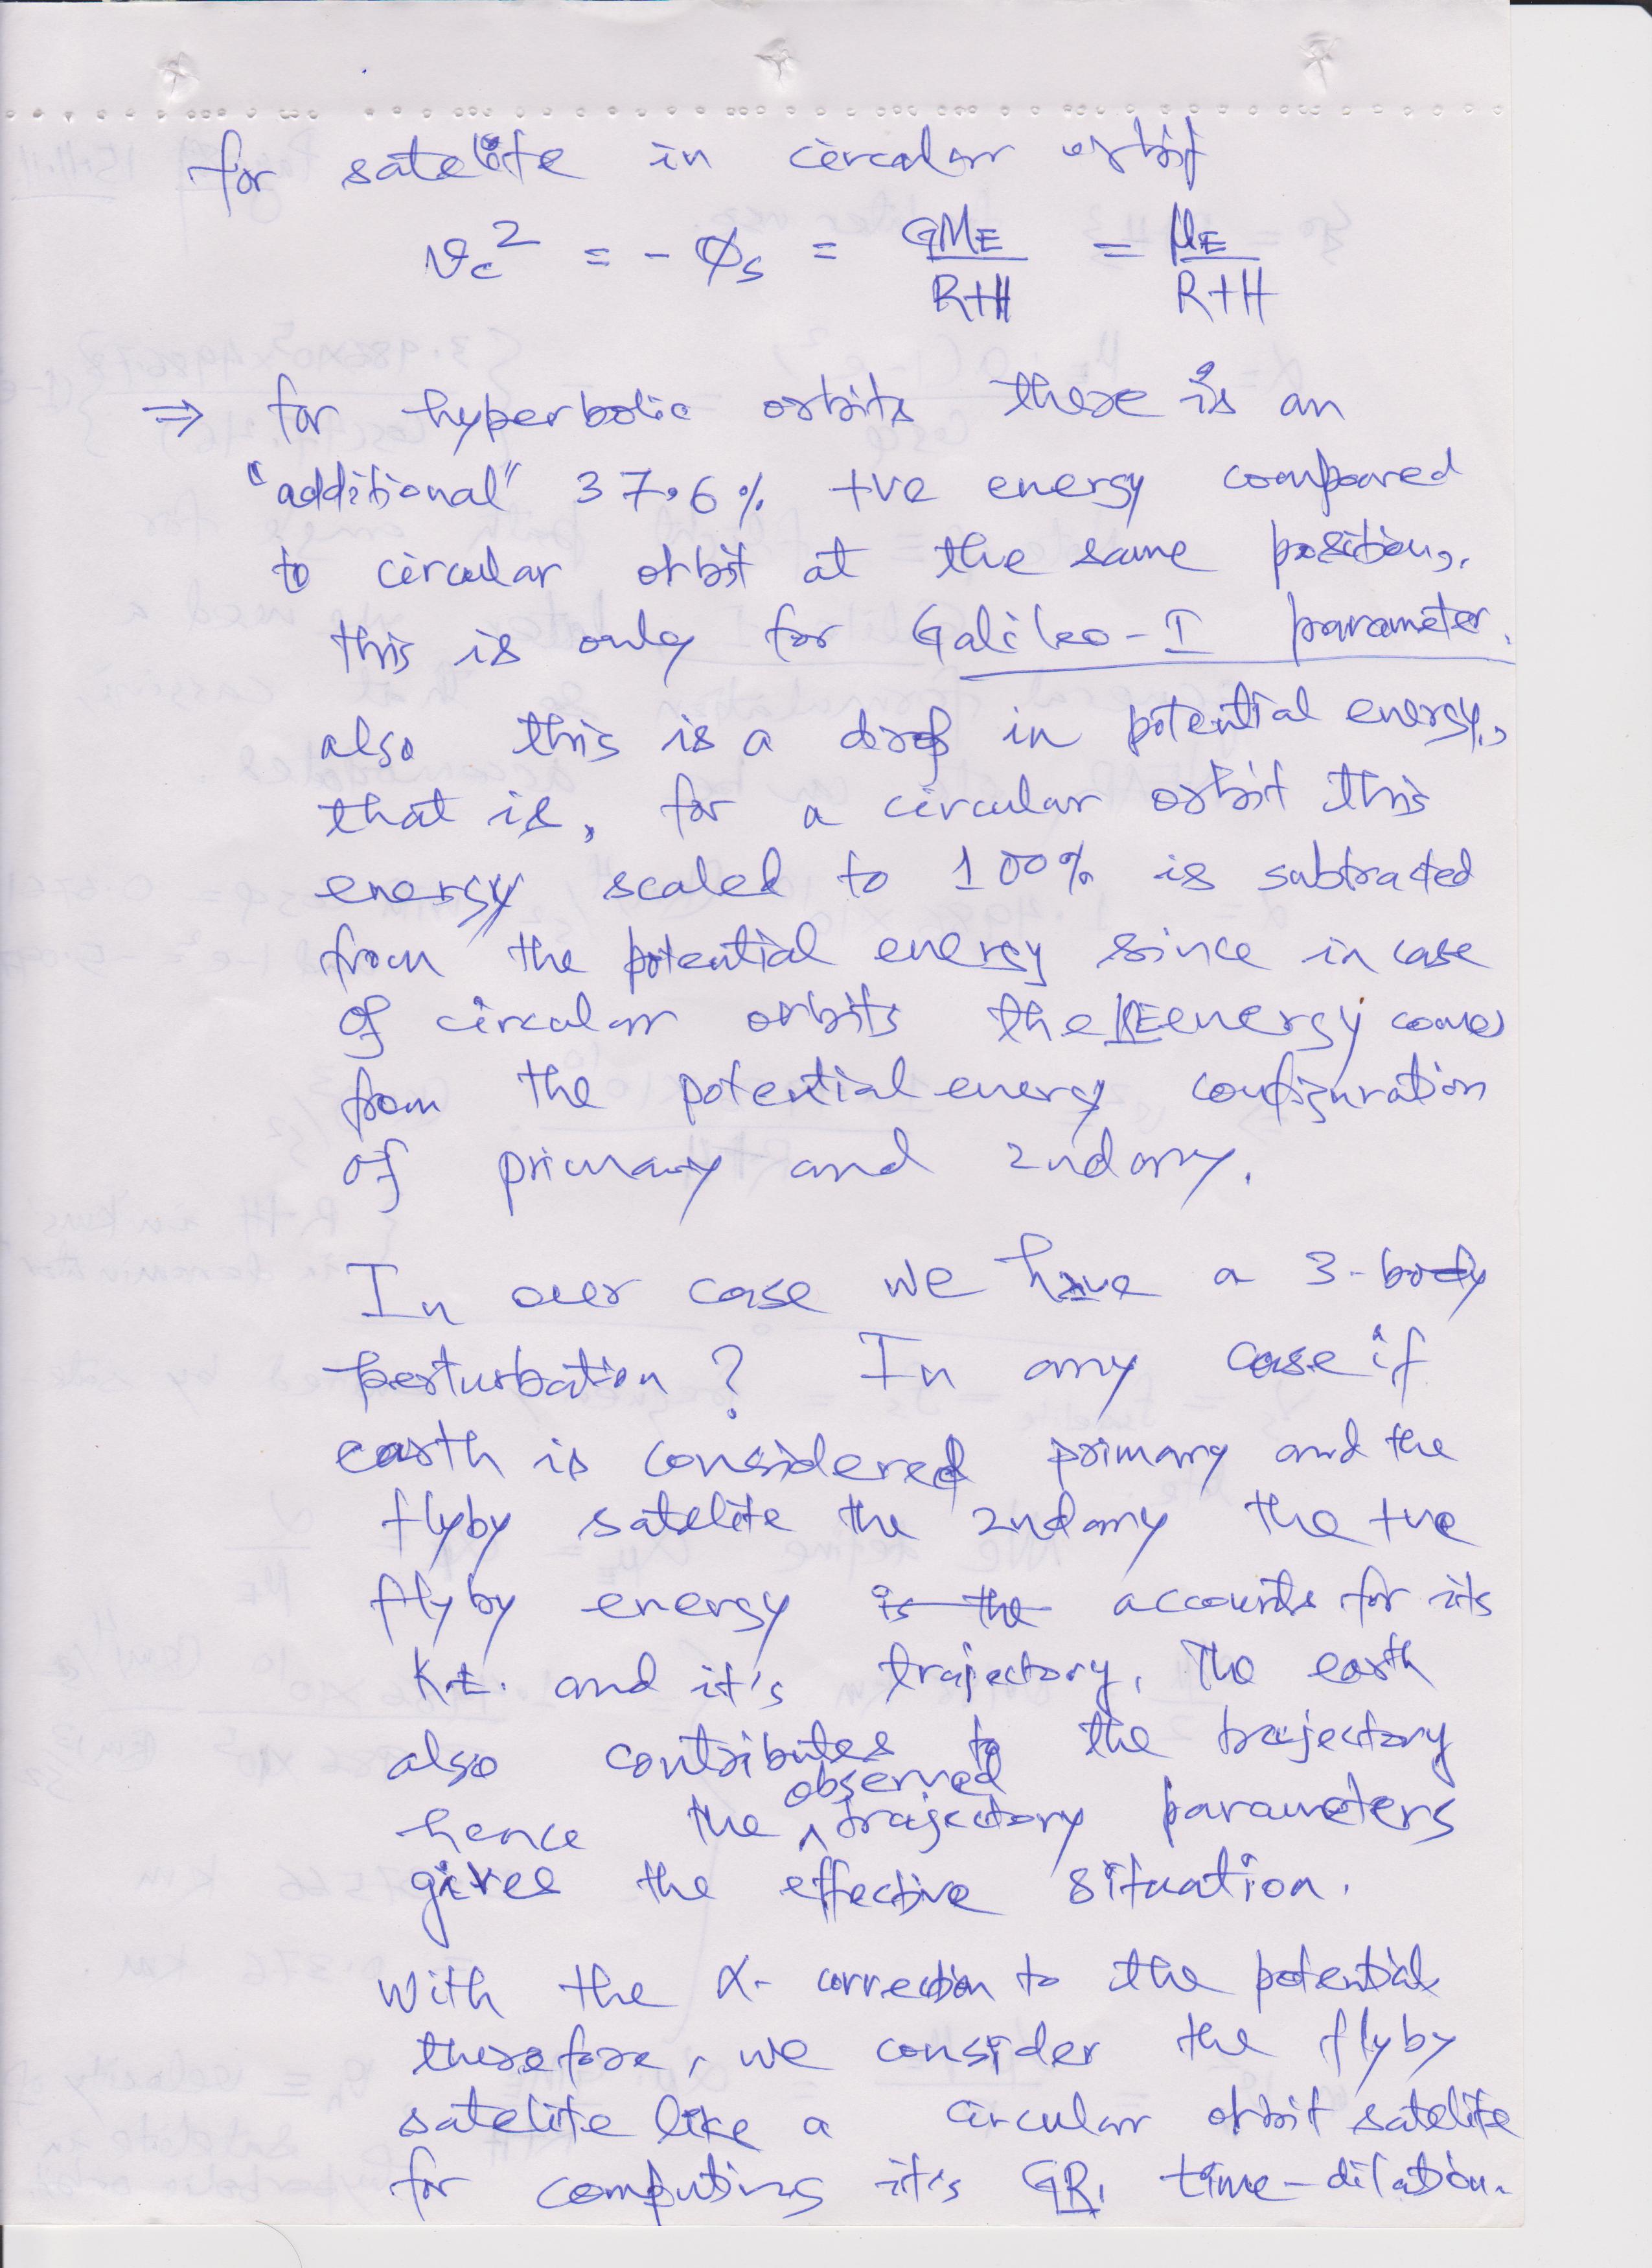 for satelite in circular orbit
vc² = -ϕs = GME/R+H = μE/R+H
⇒ for hyperbolic orbits there is an
"additional" 37.6% +ve energy compared
to circular orbit at the same position,.
this is only for Galileo-I parameter.
also this is a drop in potential energy,
that is, for a circular orbit this
energy scaled to 100% is subtracted
from the potential energy since in case
of circular orbits the KE energy comes
from the potential energy configuration
of primary and 2ndary.
In our case we have a 3-body
perturbation? In any case if
earth is considered primary and the
flyby satelite the 2ndary the +ve
flyby energy is the accounts for its
K.E. and it's trajectory. The earth
also contributes to the trajectory
hence the observed trajectory parameters
gives the effective situation.
With the α- correction to the potential
therefore, we consider the flyby
satelite like a circular orbit satelite
for computing it's GR. time-dilation.